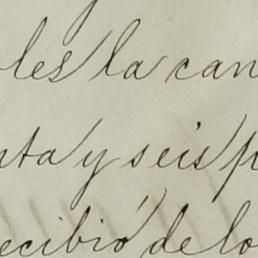 oles la can
nta y seis p
ecibió de lo